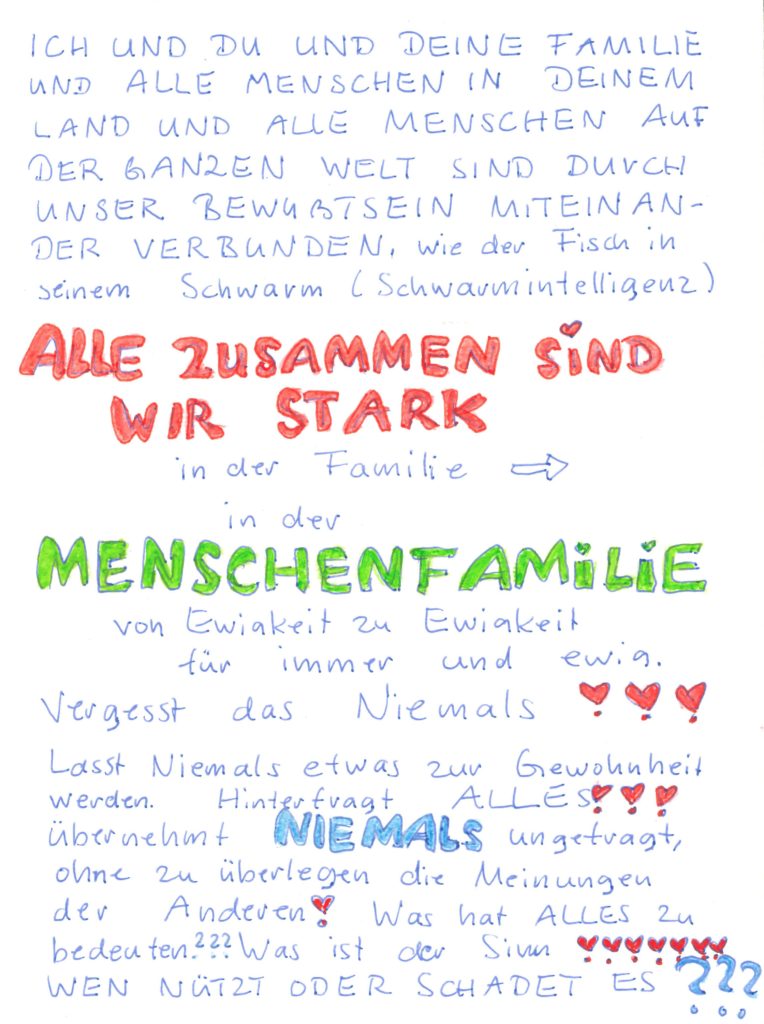 ICH UND DU UND DEINE FAMILIE
UND ALLE MENSCHEN IN DEINEM
LAND UND ALLE MENSCHEN AUF
DER GANZEN WELT SIND DURCH
UNSER BEWUßTSEIN MITEINAN-
DER VERBUNDEN, wie der Fisch in
seinem Schwarm (Schwarmintelligenz)
ALLE ZUSAMMEN SIND
WIR STARK
in der Familie ⇨
in der
MENSCHENFAMILIE
von Ewigkeit zu Ewigkeit
für immer und ewig.
Vergesst das Niemals ❣❣❣
Lasst Niemals etwas zur Gewohnheit
werden. Hinterfragt ALLES❣❣❣
übernehmt NIEMALS ungefragt,
ohne zu überlegen die Meinungen
der Anderen❣ Was hat ALLES zu
bedeuten??? Was ist der Sinn ❣❣❣❣❣❣❣
WEN NÜTZT ODER SCHADET ES ???